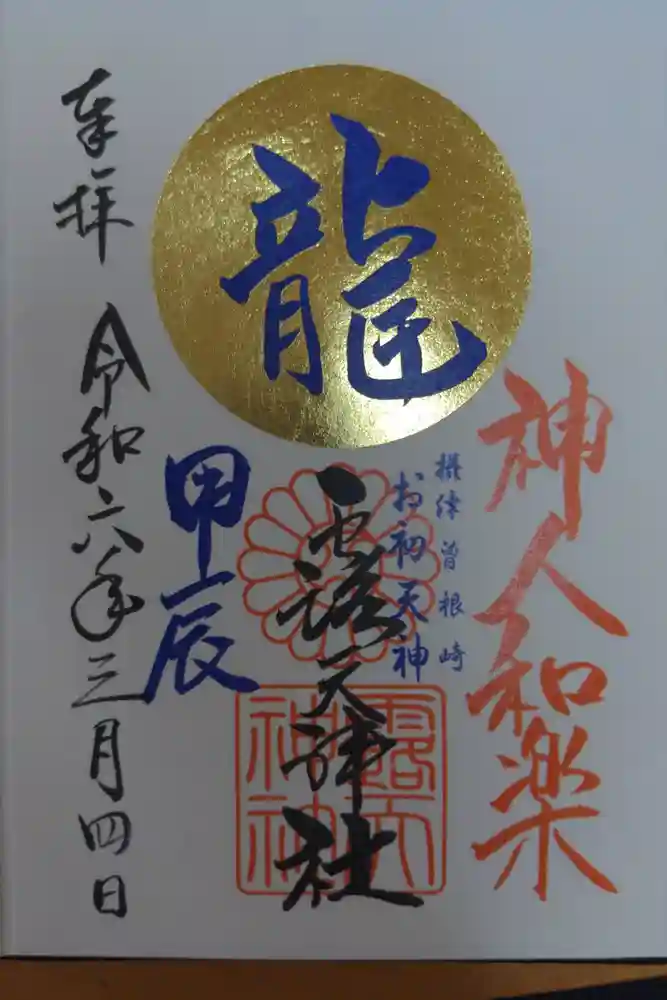 神人和楽
摂津 曽根崎
お初天神
龍
露天神社
甲辰
奉拝 令和六年三月四日